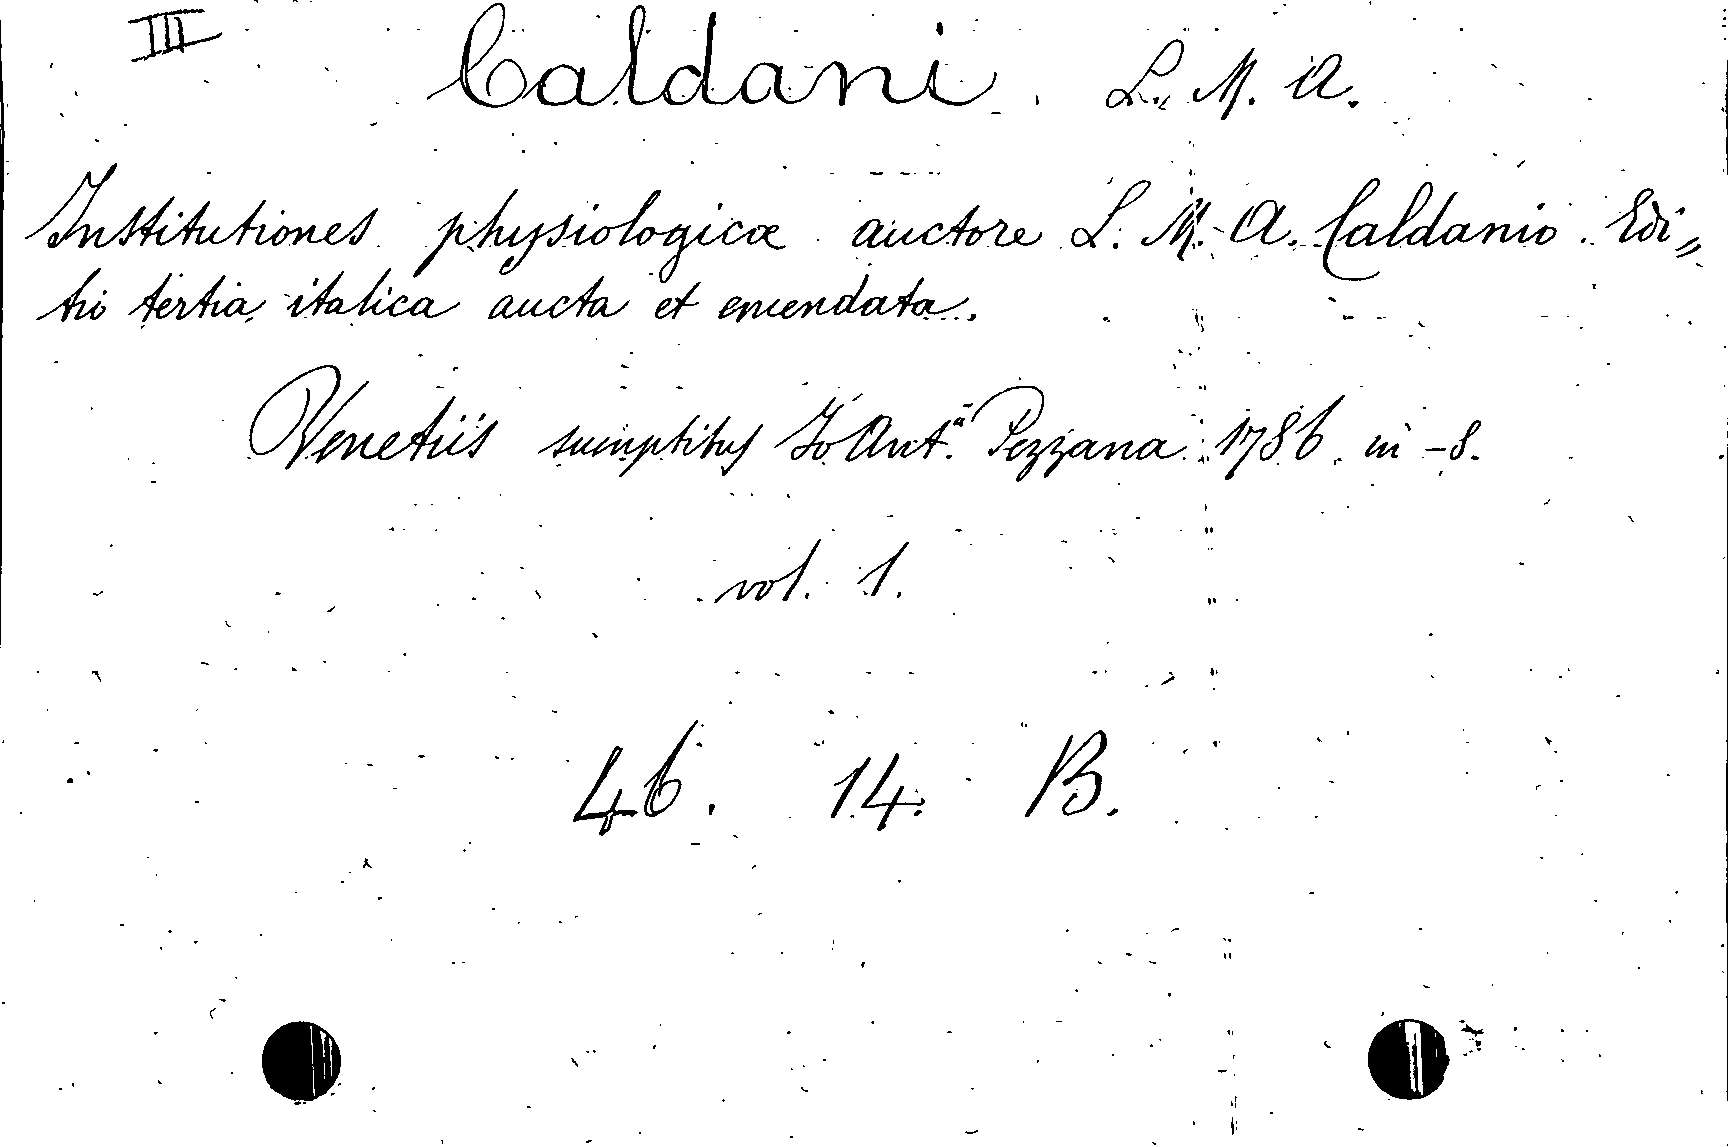 III Caldani. L. M. A.
Institutiones physiologicæ auctore L. M. A. Caldanio. Edi„
tio tertia italica aucta et emendata.
Venetiis sumptibus Jo Ant.ᵃ Pezzana 1786. in-8.
vol. 1.
46. 14. B.